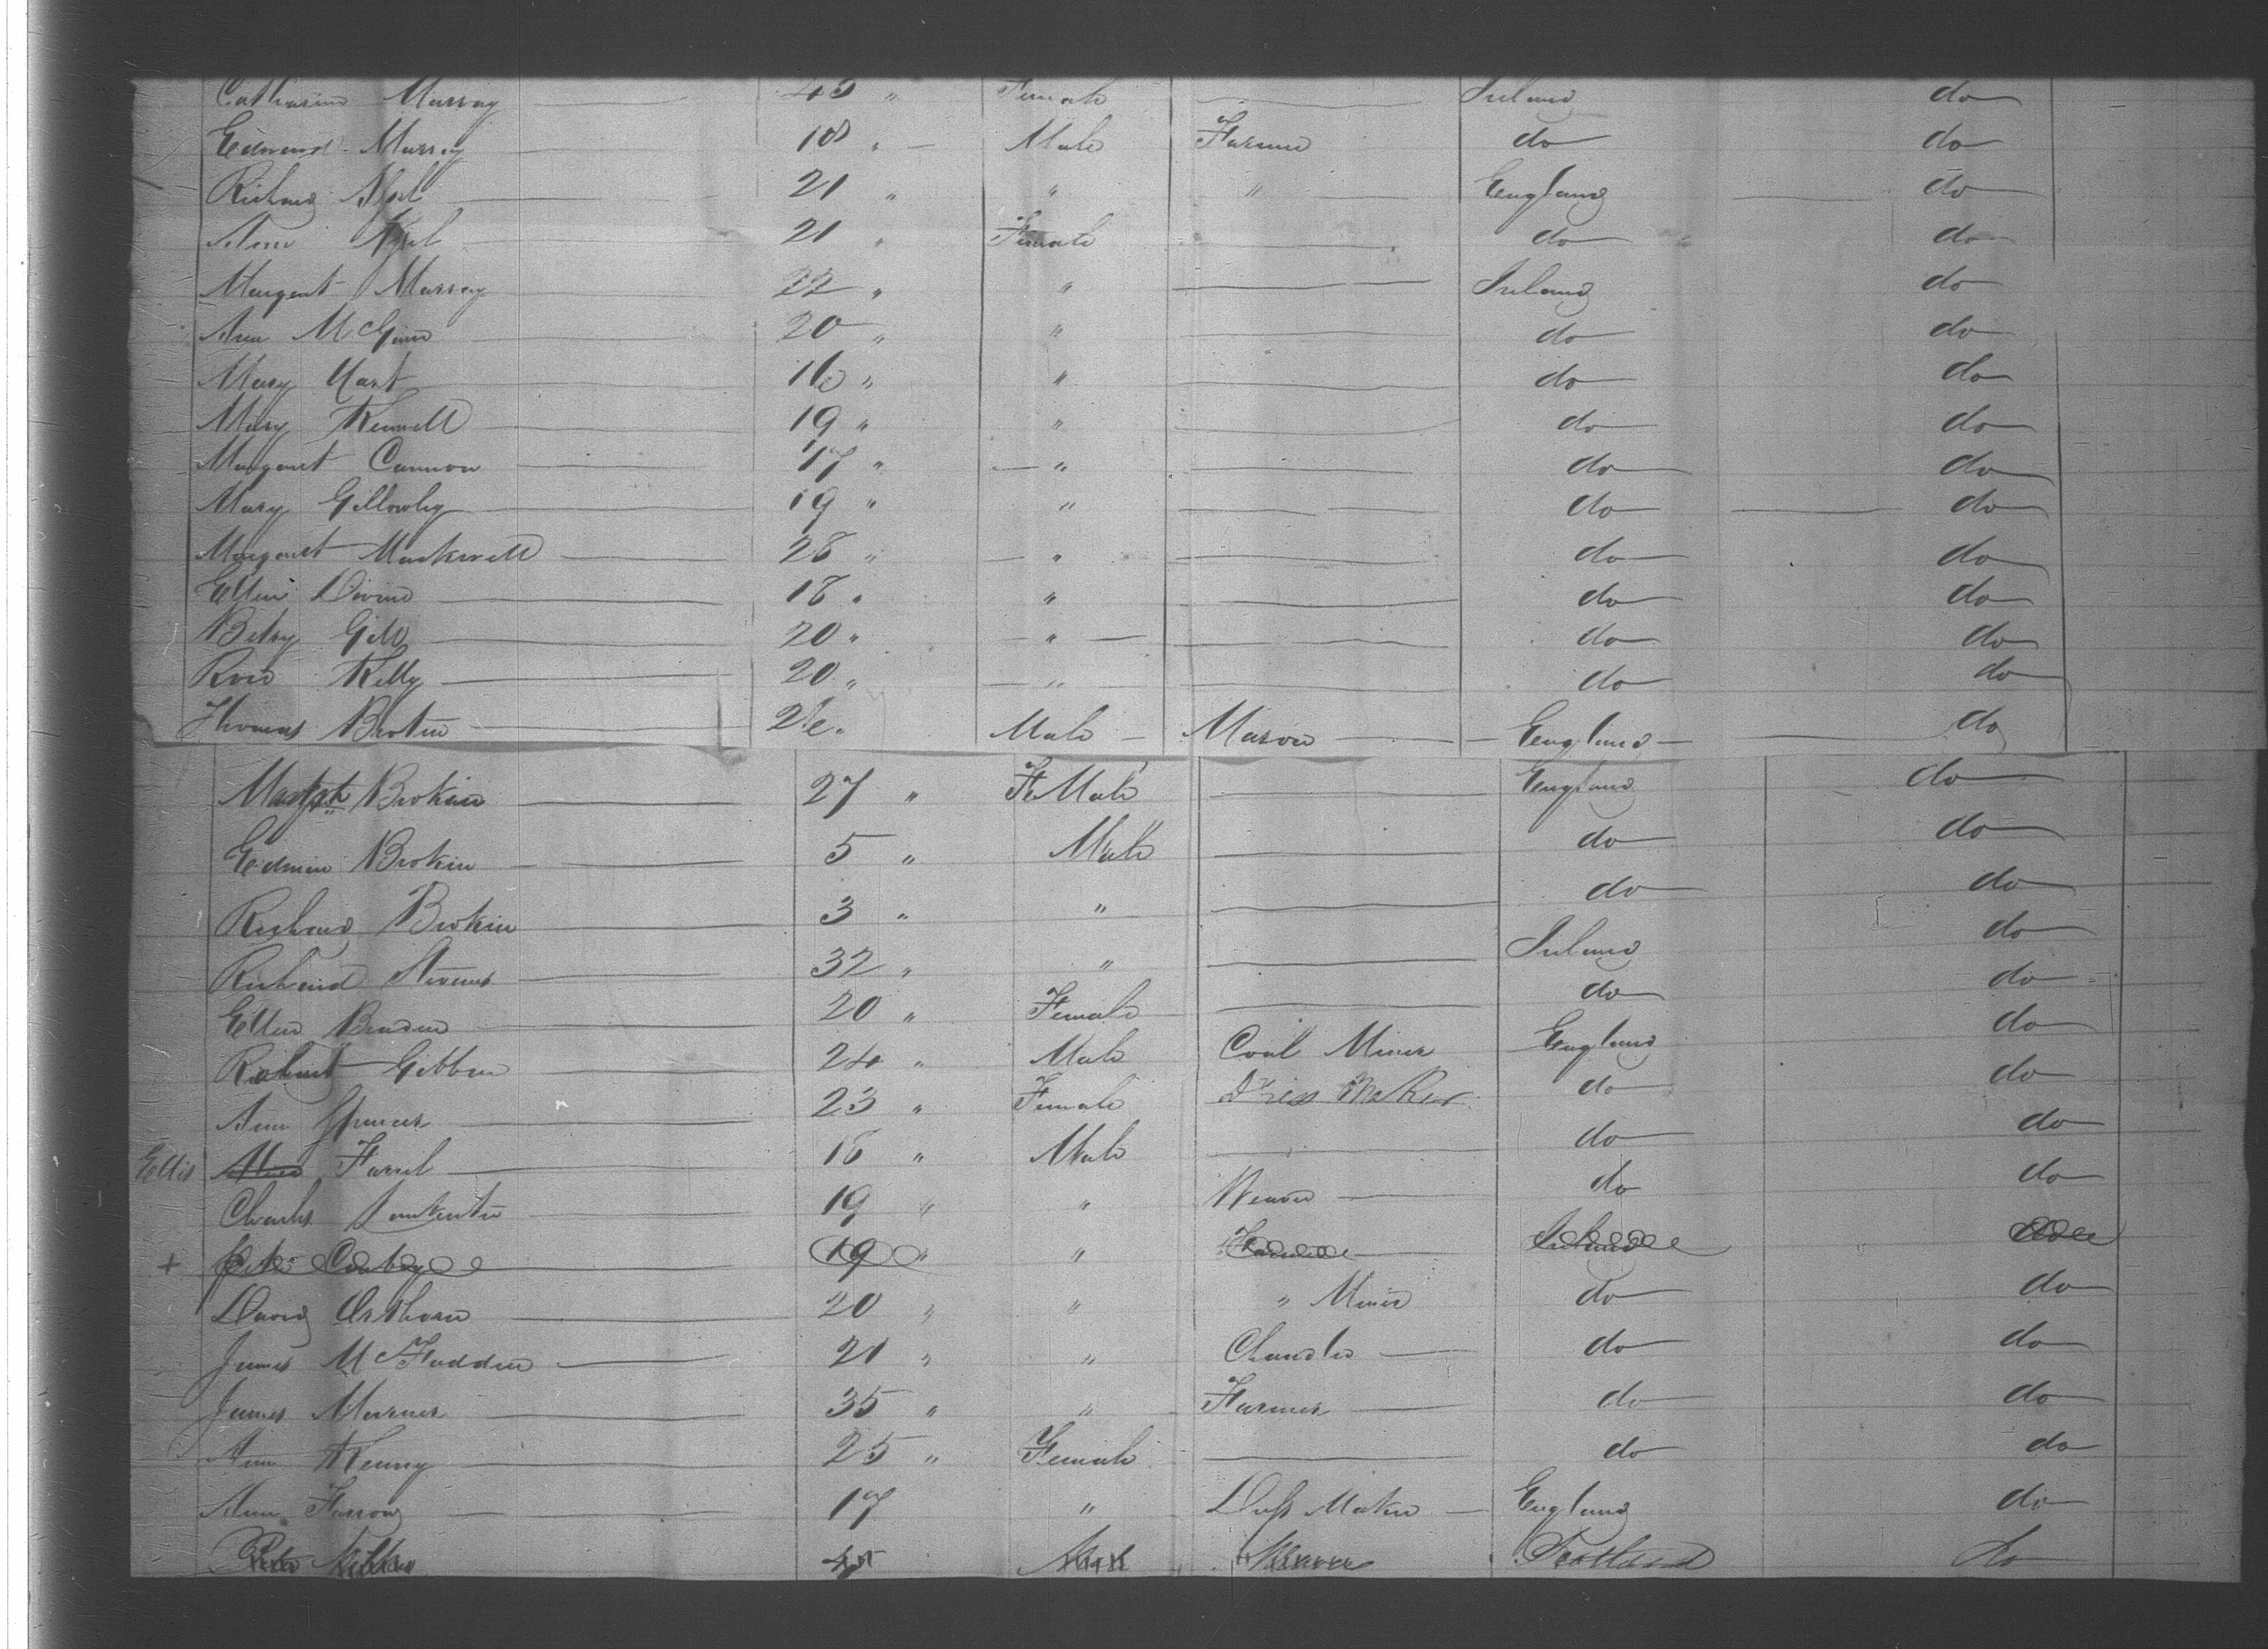 Catharine Murray 45 " Female Ireland do
Edmund Murray 18 " Male Farmer do do
Richard 21 " " " England do
Ann 21 " Female do do
Margaret Murray 22 " " Ireland do
Ann McGinn 20 " " do do
Mary Hart 16 " " do do
Mary Kennell 19 " " do do
Margaret Cannon 17 " " do do
Mary Gillowly 19 " " do do
Margaret 28 " " do do
Ellen Divine 18 " " do do
Betsy Gill 20 " " do do
Rose Kelly 20 " " do do
Thomas Male Mason England do
Brokin 27 " FeMale England do
Edwin Brokin 5 " Male do do
Richard Brokin 3 " " do do
Richard Stevens 32 " " Ireland do
Ellen 20 " Female do do
Robert Gibbon 24 " Male Coal Miner England do
Ann Spencer 23 " Female Dress Maker do do
Ellis Farrel 18 " Male do do
Charles 19 " " Weaver do do
+ 19 " " Farmer Ireland do
David 20 " " " Miner do do
James McFadden 21 " " Chandler do do
James 35 " " Farmer do do
Ann Kenny 25 " Female do do
Ann Farrow 17 " Dress Maker England do
Peter 45 Male Weaver Scotland do